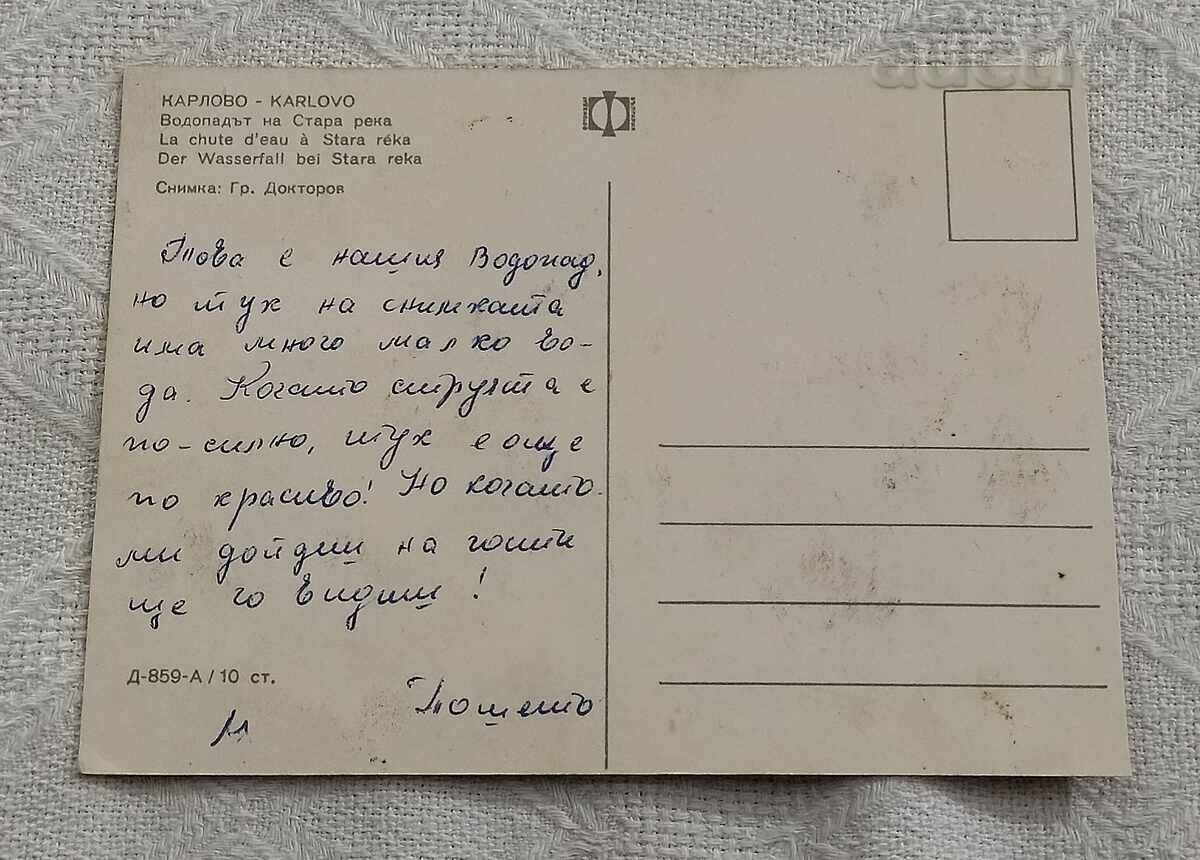 auction
КАРЛОВО - KARLOVO
Водопадът на Стара река
La chute d'eau à Stara réka
Der Wasserfall bei Stara reka
Снимка: Гр. Докторов
Това е нашия Водопад,
но тук на снимката
има много малко во-
да. Когато струята е
по-силно, тук е още
по красиво! Но когато
ми дойдеш на гости
ще го видиш!
Д-859-А / 10 ст.
Тошето